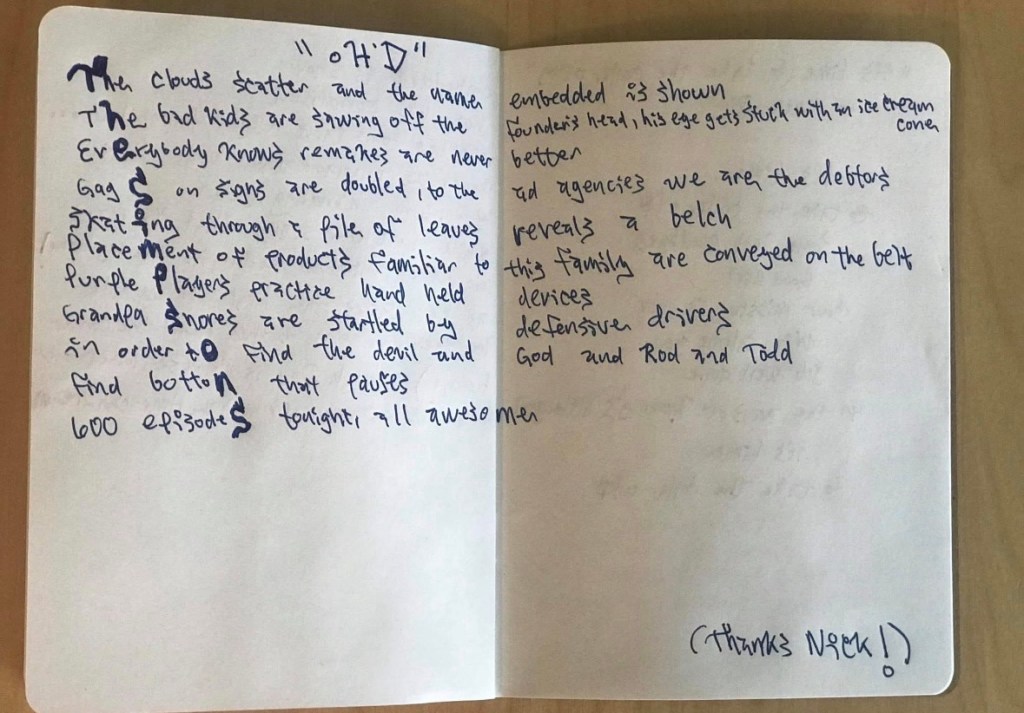 "oH'D"
The clouds scatter and the name embedded is shown
The bad kids are sawing off the founder's head, his eye gets stuck with an ice cream
cone
Everybody knows remakes are never better
Gags on signs are doubled, to the ad agencies we are the debtors
Skating through a pile of leaves reveals a belch
Placement of products familiar to this family are conveyed on the belt
Purple Players practice hand held devices
Grandpa snores are startled by defensive drivers
in order to find the devil and God and Rod and Todd
find botton that pauses
600 episodes tonight, all awesome
(thanks Nick!)